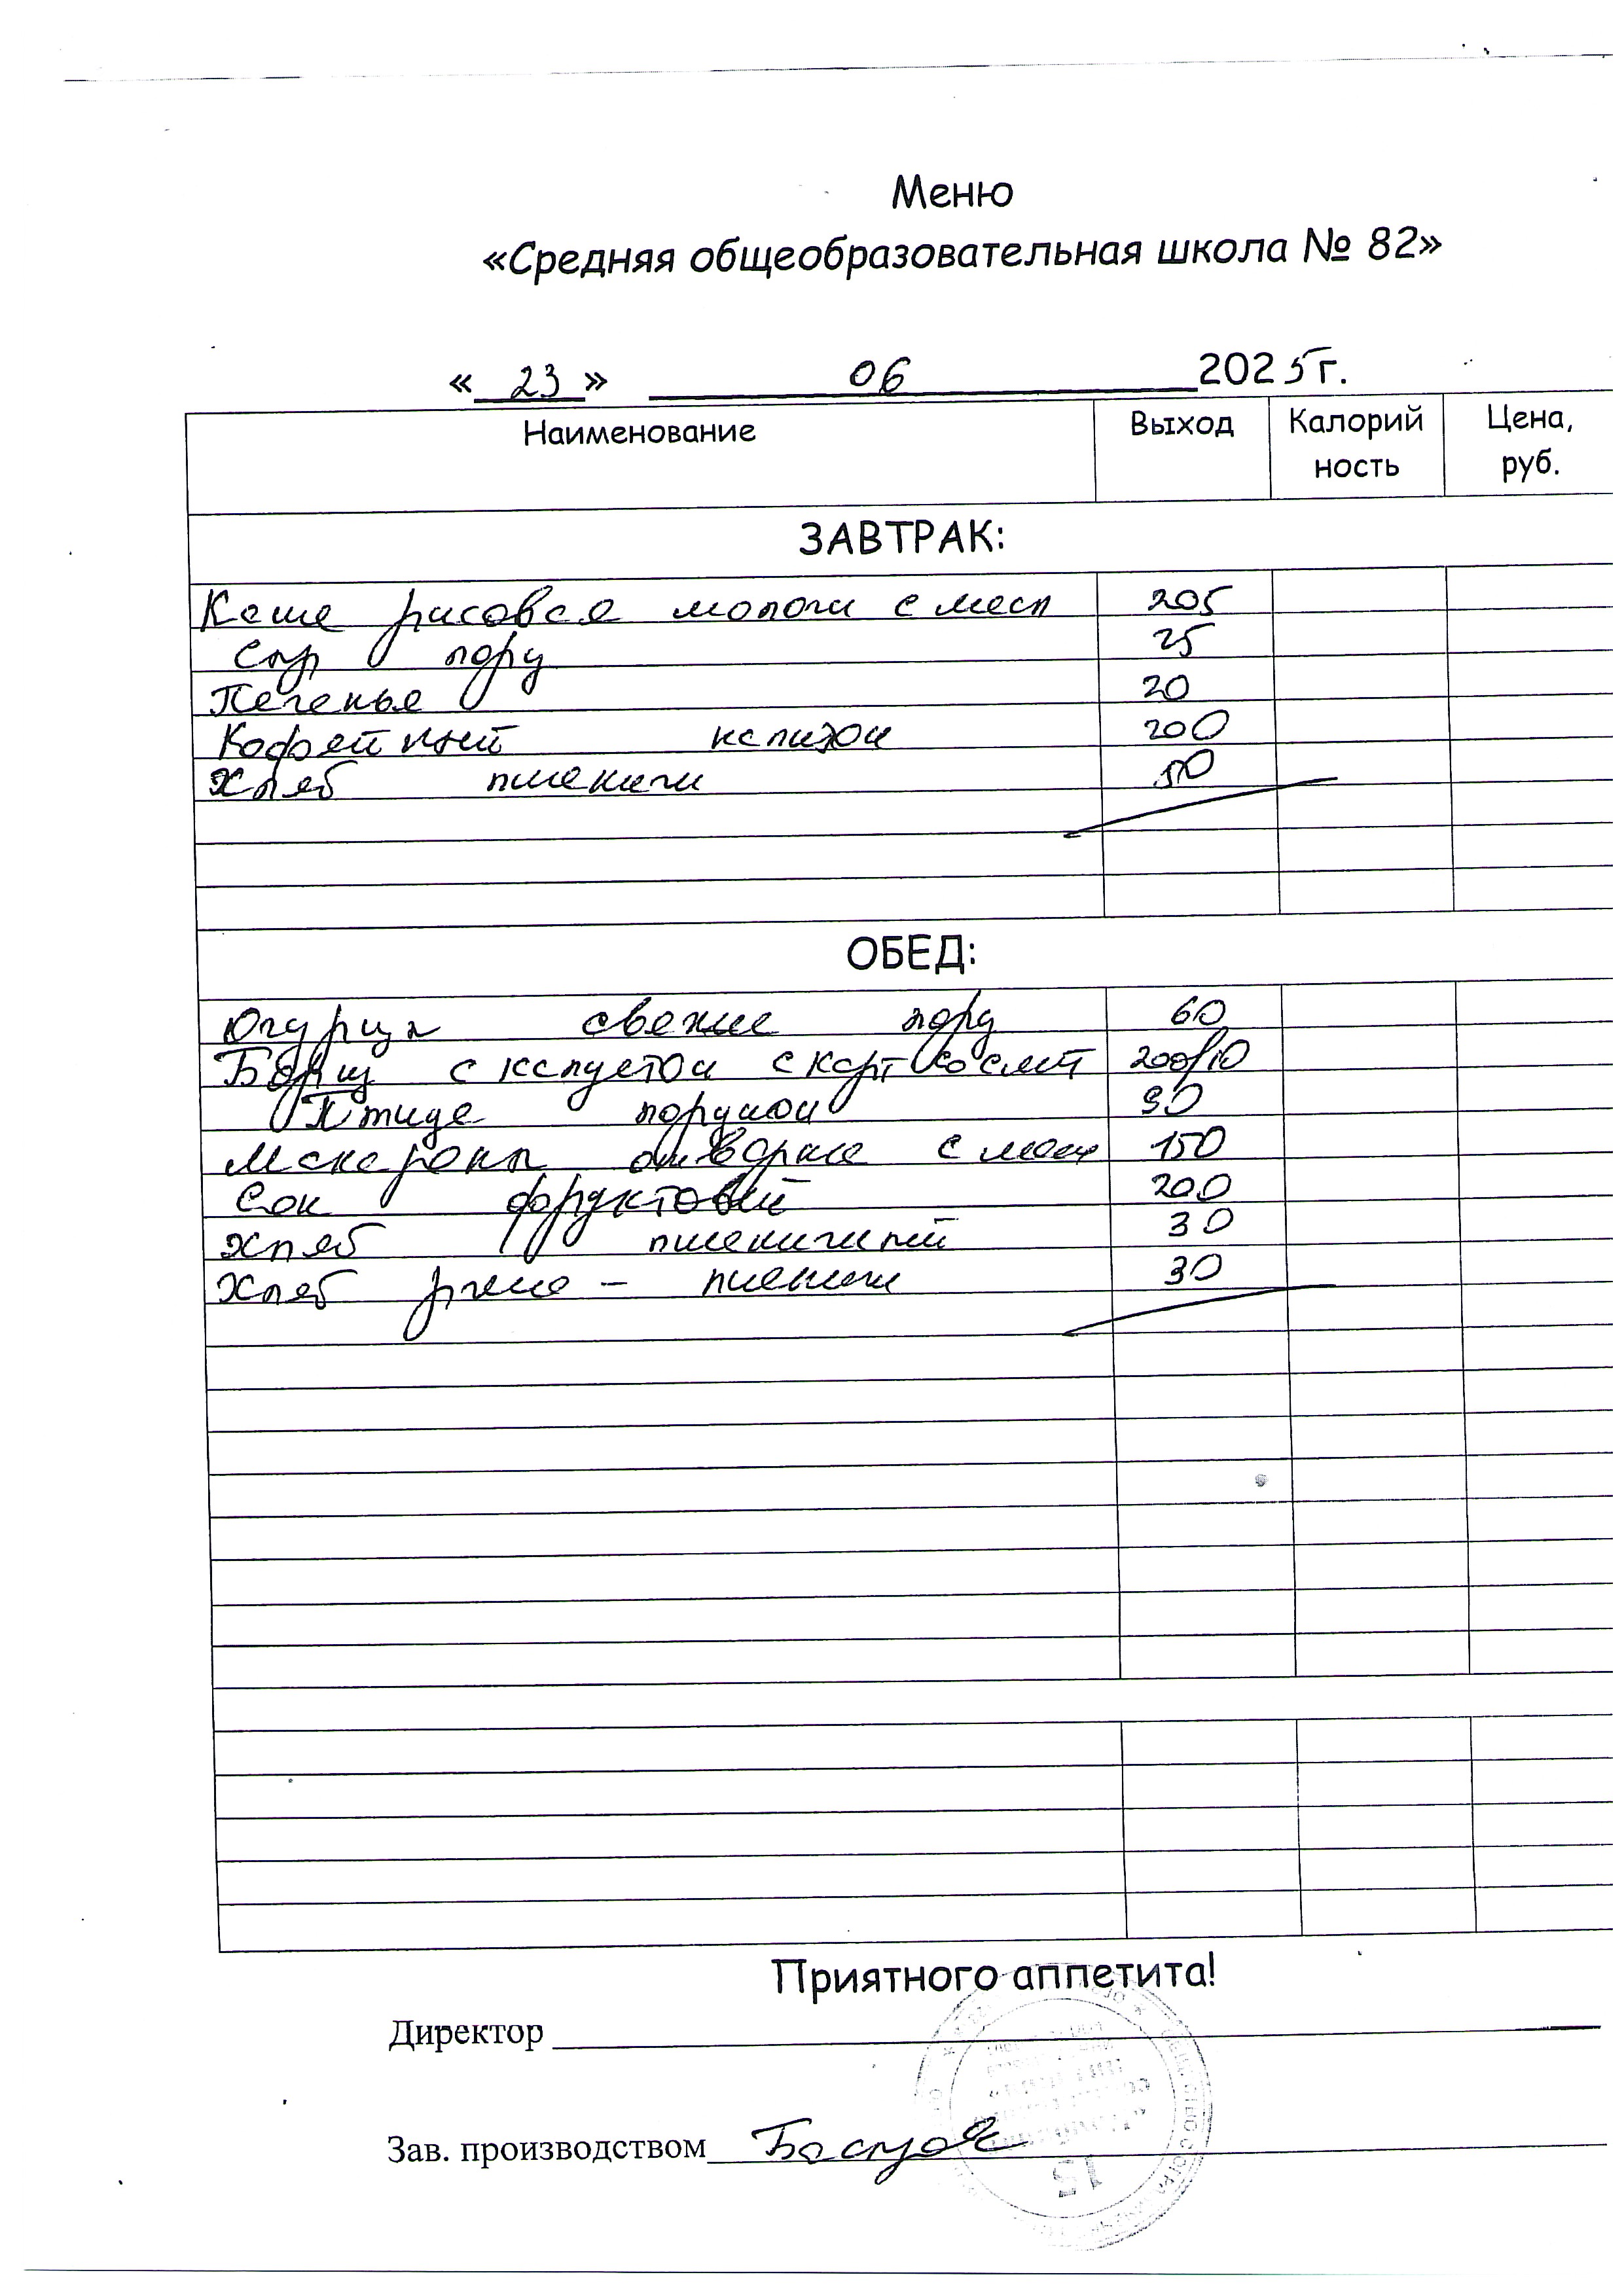 Меню
«Средняя общеобразовательная школа № 82»
« 23 » 06 2025 г.
Наименование Выход Калорий Цена,
ность руб.
ЗАВТРАК:
Каша рисовая молочн с масл 205
Сыр порц 25
Печенье 20
Кофейный напиток 200
Хлеб пшеничн 50
ОБЕД:
Огурцы свежие порц 60
Борщ с капустой с карт со смет 200/10
Птица порцион 90
Макароны отварные с масл 150
Сок фруктовый 200
Хлеб пшеничный 30
Хлеб ржано - пшеничн 30
Приятного аппетита!
Директор
Зав. производством
15